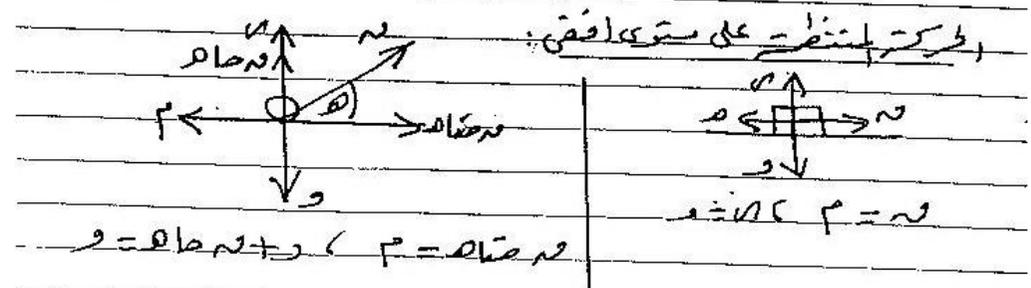 الحركة المنتظمة على مستوى افقى:
ر
م
ن
و
ن = م ، ر = و
ر
ن
ن حا هـ
هـ
م
ن حتا هـ
و
ن حتا هـ = م ، ر + ن حا هـ = و